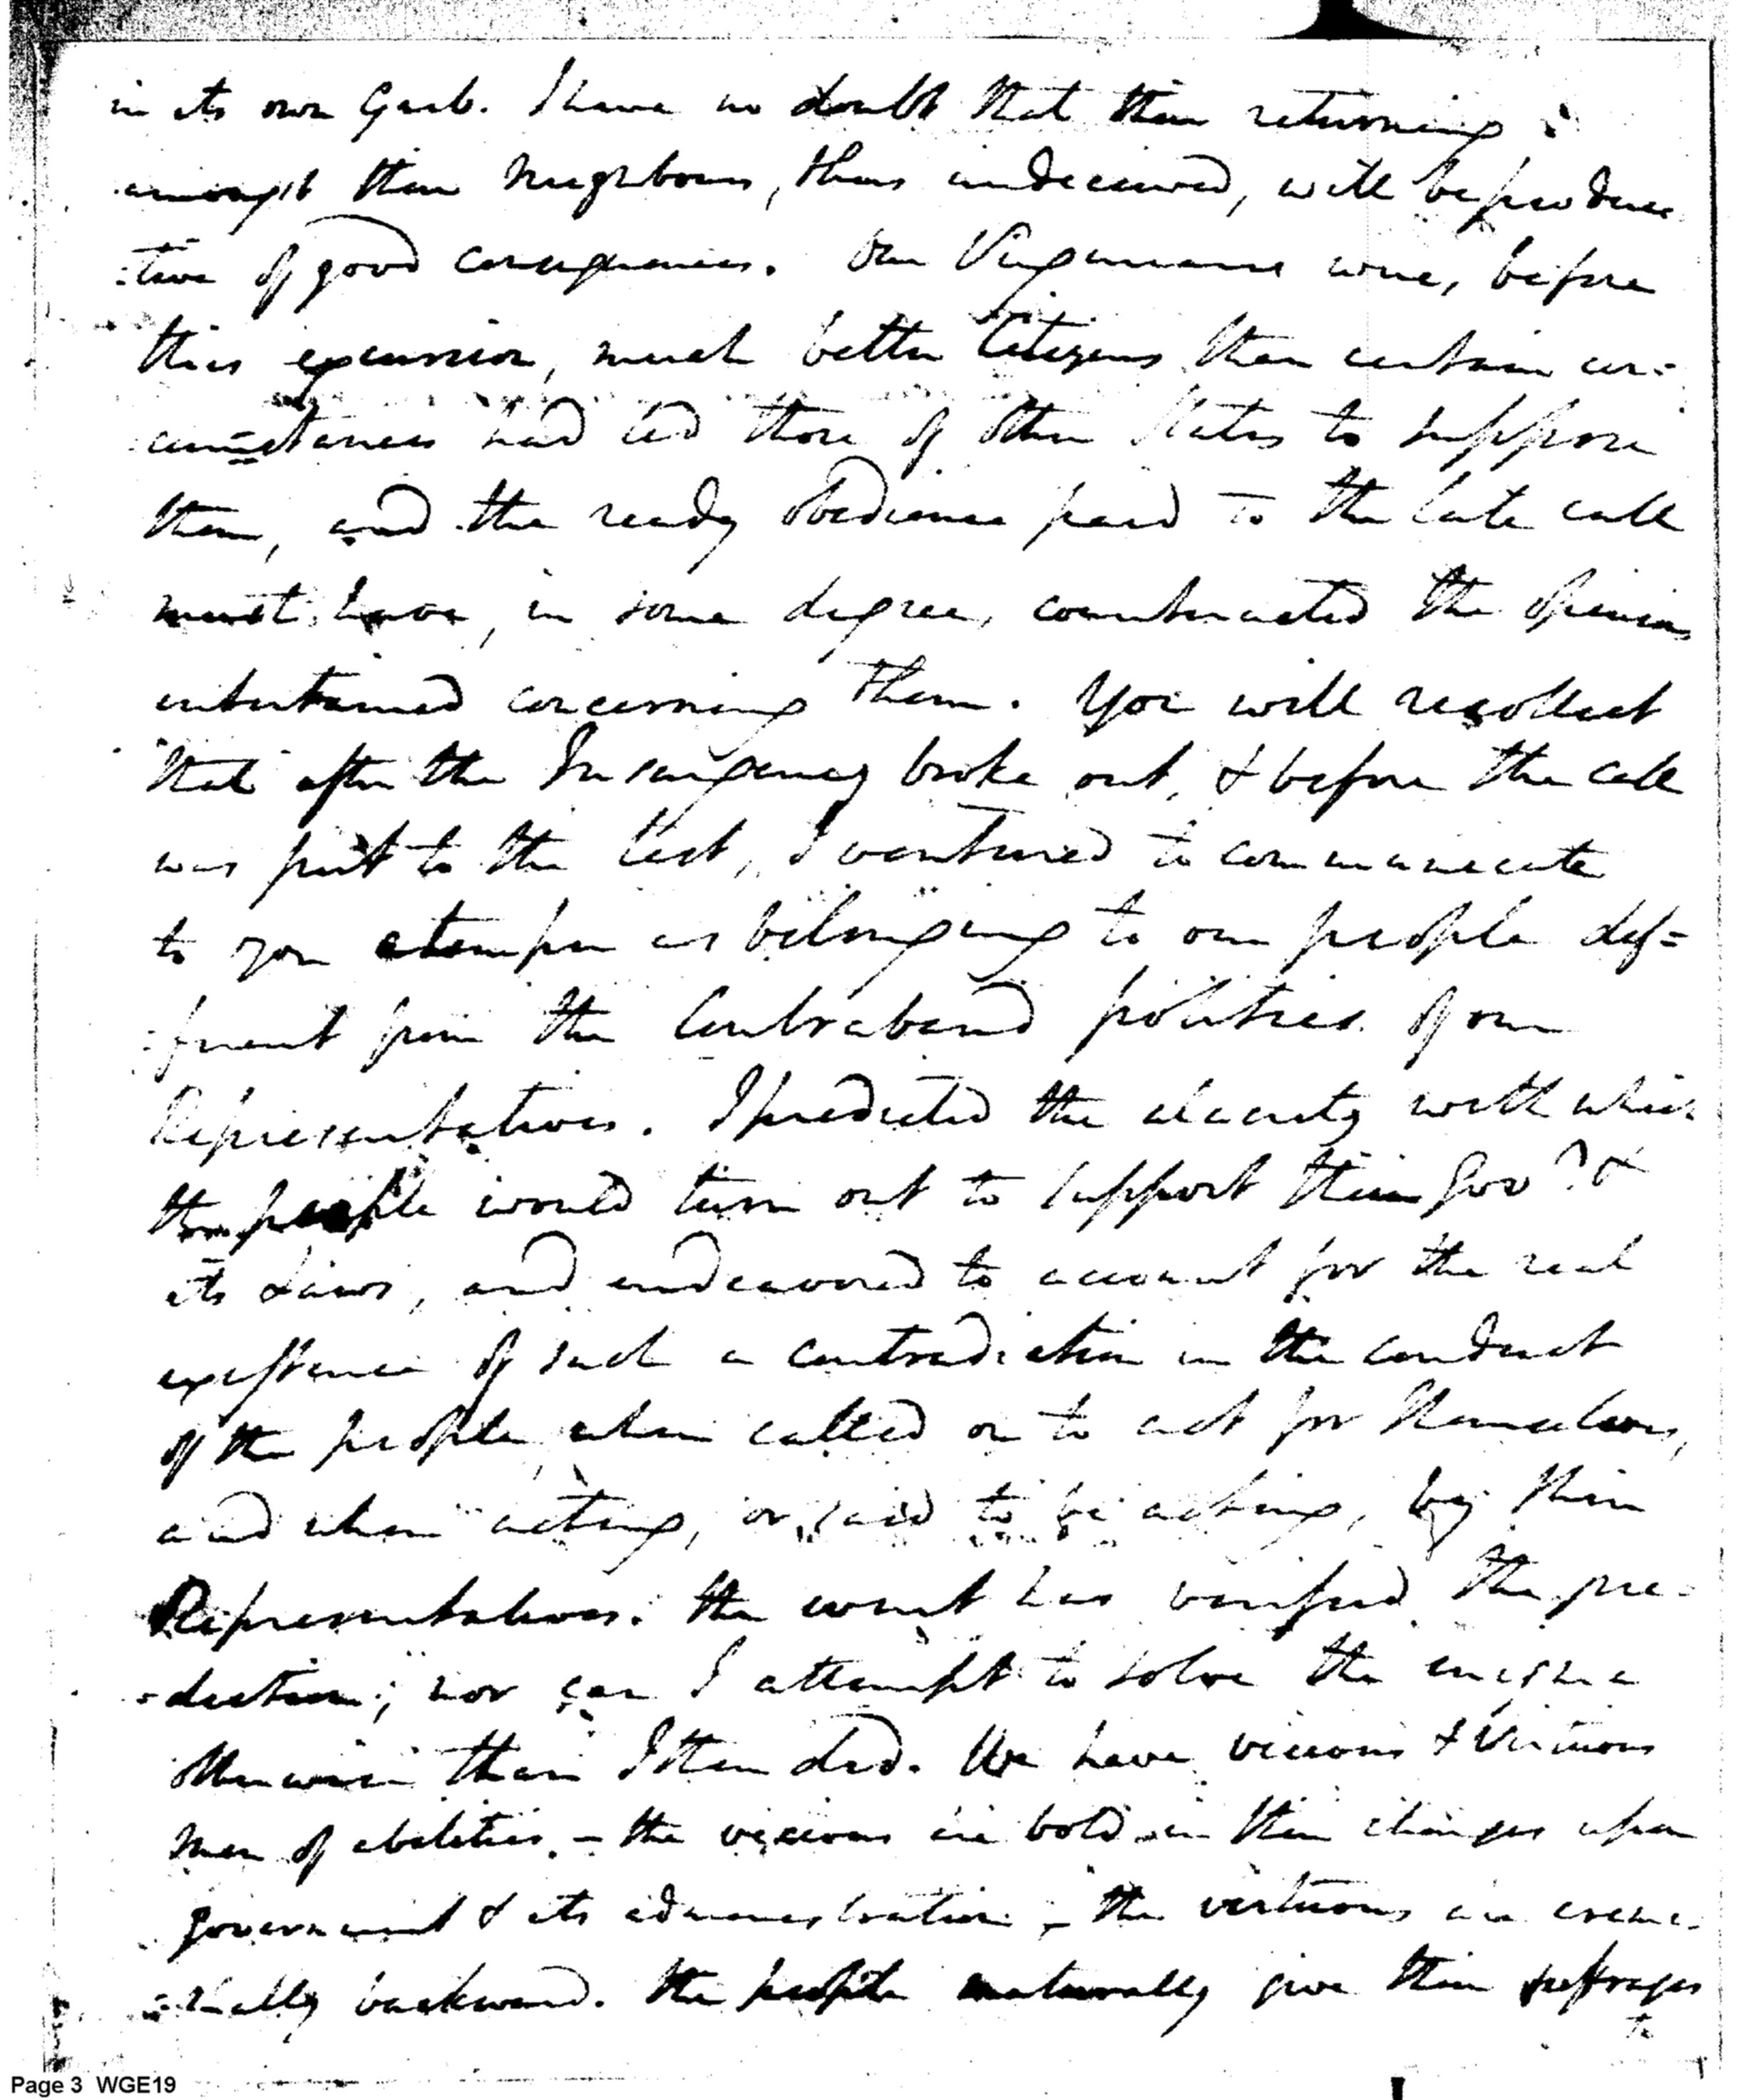 in its own Garb. I have no doubt that their returning
amongst their Neighbours, thus undeceived, will be produc
:tive of good consequences. Our Virginians were, before
this excursion, much better Citizens than certain cir=
cumstances had led those of other States to suppose
them, and the ready obedience paid to the late call
must have, in some degree, counteracted the opinions
entertained concerning them. You will recollect
that after the Insurgency broke out, & before the call
was put to the test, I ventured to communicate
to you a temper as belonging to our people dif=
:ferent from the Contraband politics of our
Representatives. I predicted the alacrity with which
the people would turn out to support their Govt. &
its Laws, and endeavored to account for the real
existence of such a contradiction in the conduct
of the people, when called on to act for themselves,
and when acting, or said to be acting, by their
Representatives. the event has verified the pre-
-diction; nor can I attempt to solve the enigma
otherwise than I then did. We have vicious & Virtuous
men of abilities. - the vicious are bold in their charges upon
government & its administration; - the virtuous are
backward. the people naturally give their suffrages
to
Page 3 WGE19